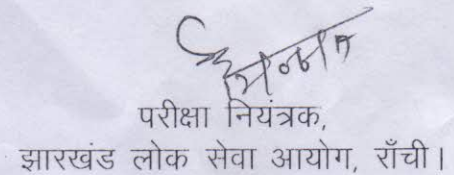 परीक्षा नियंत्रक,
झारखंड लोक सेवा आयोग, राँची।